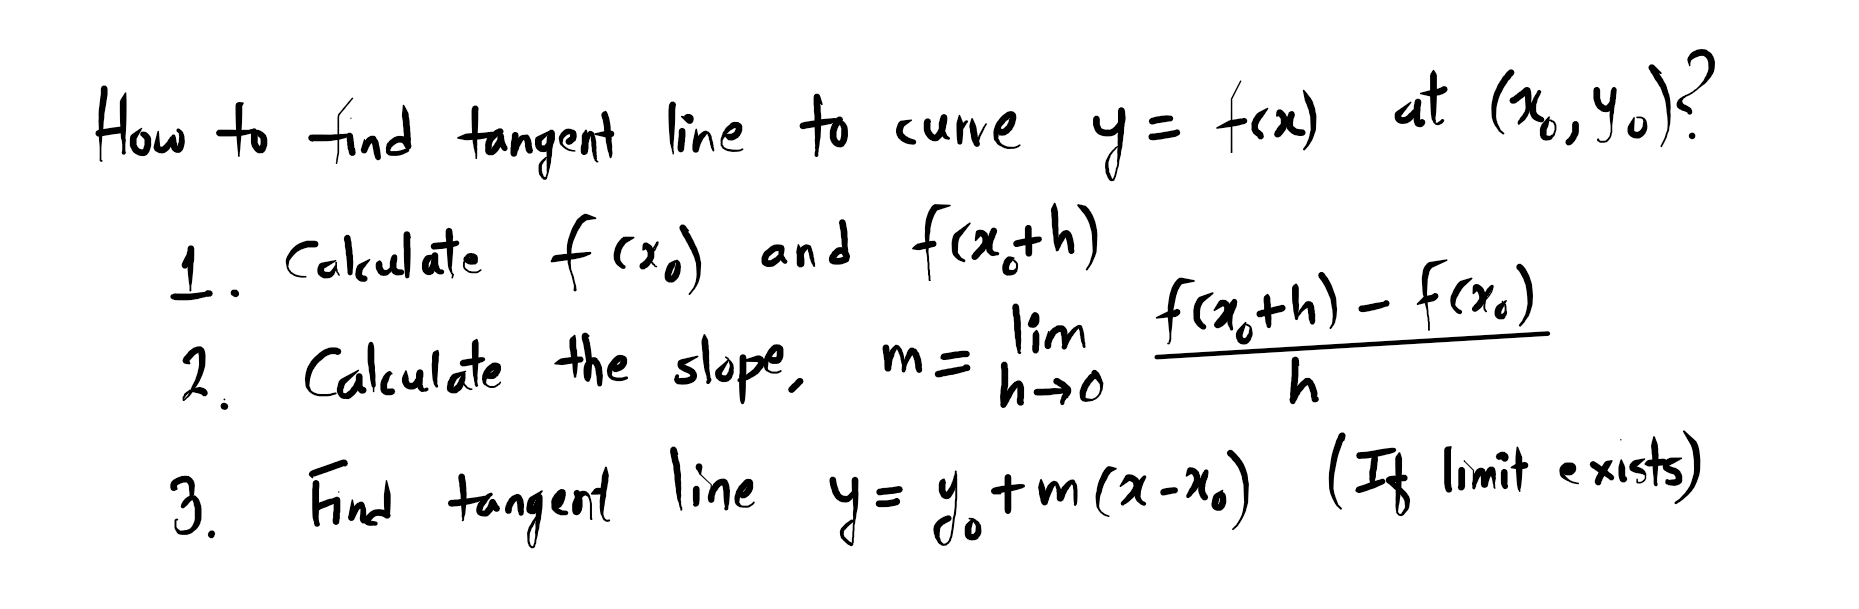 How to find tangent line to curve y = f(x) at (x₀, y₀)?
1. Calculate f(x₀) and f(x₀+h)
2. Calculate the slope, m = lim h→0 f(x₀+h) - f(x₀) / h
3. Find tangent line y = y₀ + m(x-x₀) (If limit exists)